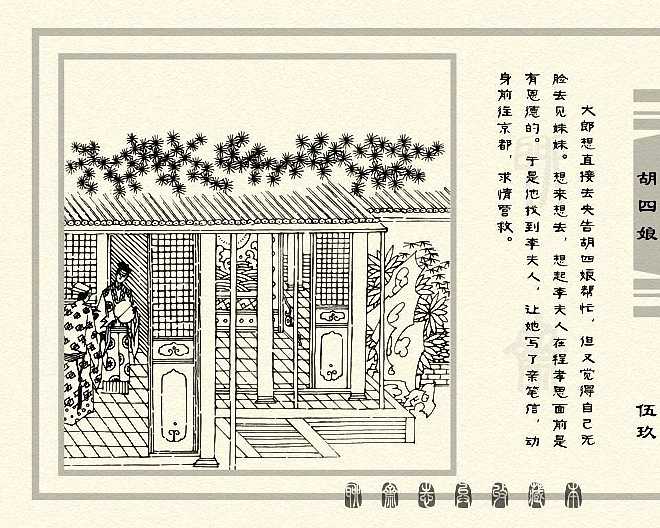 大郎想直接去央告胡四娘帮忙，但又觉得自己无
脸去见妹妹。想来想去，想起李夫人在程孝思面前是
有恩德的。于是他找到李夫人，让她写了亲笔信，动
身前往京都，求情营救。
胡四娘
伍玖